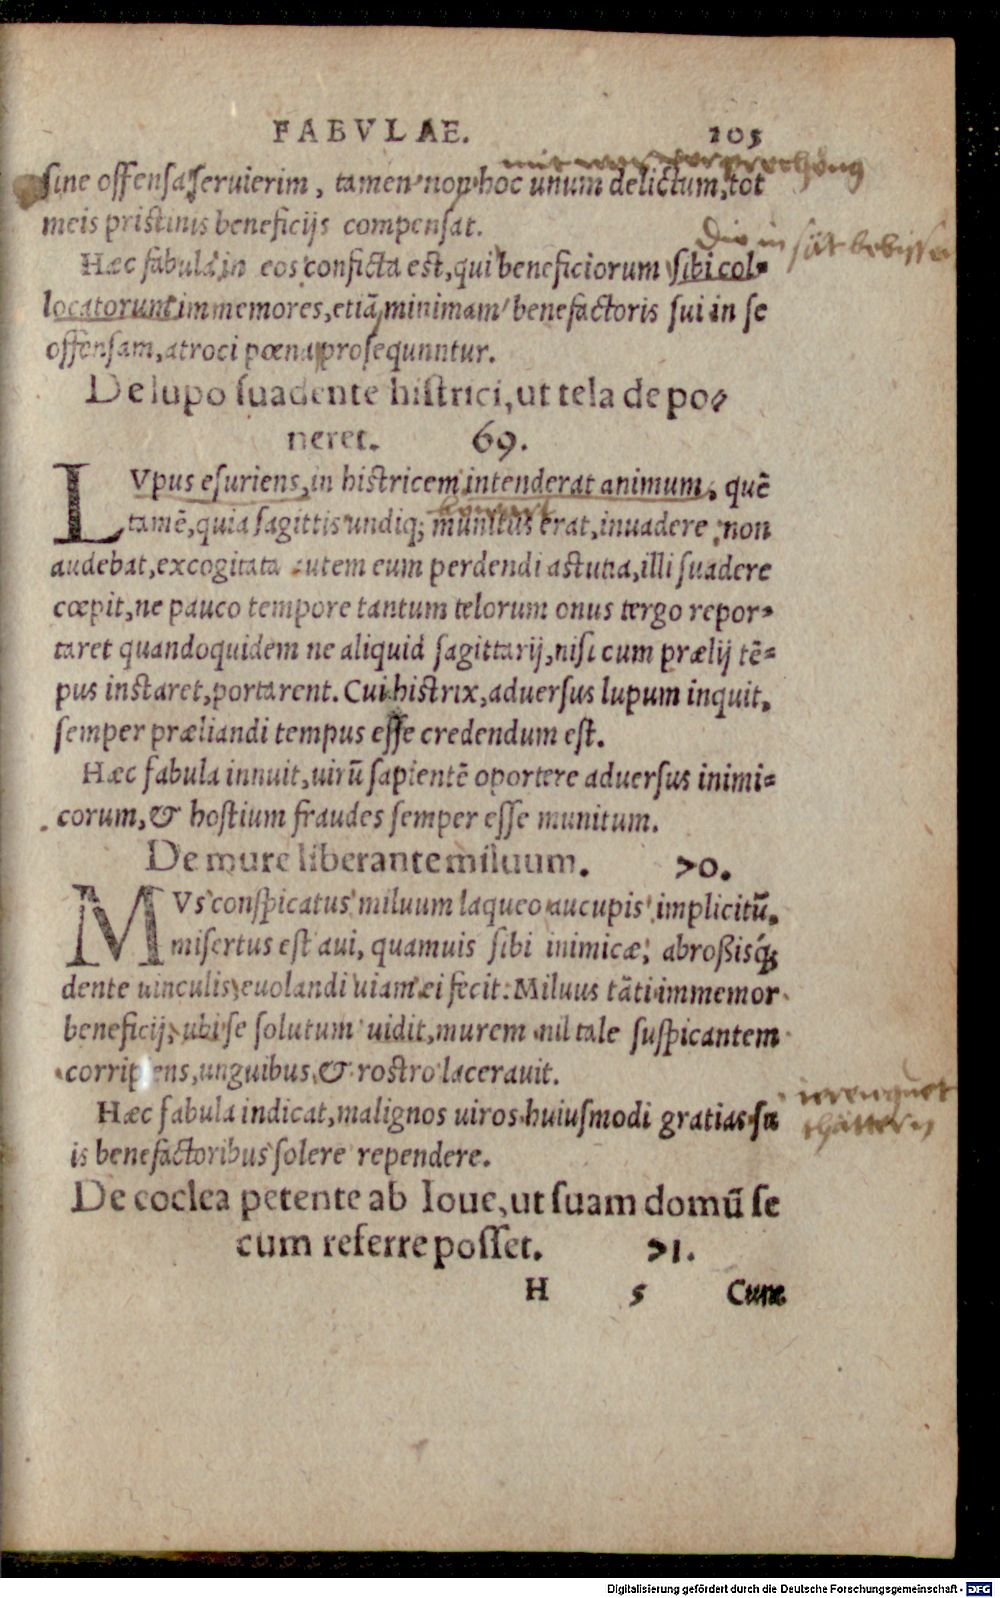 FABVLAE. 105
sine offensa seruierim, tamen non hoc unum delictum, tot
meis pristinis beneficijs compensat.
Hæc fabula in eos conficta est, qui beneficiorum sibi col-
locatorum immemores, etiā minimam benefactoris sui in se
offensam, atroci pœna prosequnntur.
De lupo suadente histrici, ut tela depo-
neret. 69.
LVpus esuriens, in histricem intenderat animum, quē
tamē, quia sagittis undiq; munitus erat, inuadere non
audebat, excogitata autem eum perdendi astutia, illi suadere
cœpit, ne pauco tempore tantum telorum onus tergo repor-
taret quandoquidem ne aliquid sagittarij, nisi cum prælij tē-
pus instaret, portarent. Cui histrix, aduersus lupum inquit,
semper præliandi tempus esse credendum est.
Hæc fabula innuit, uirū sapientē oportere aduersus inimi-
corum, & hostium fraudes semper esse munitum.
De mure liberante miluum. 70.
MVs conspicatus miluum laqueo aucupis implicitū,
misertus est aui, quamuis sibi inimicæ, abroßisq́;
dente uinculis, euolandi uiam ei fecit: Miluus tāti immemor
beneficij, ubi se solutum uidit, murem nil tale suspicantem
corripiens, unguibus, & rostro lacerauit.
Hæc fabula indicat, malignos uiros huiusmodi gratias su
is benefactoribus solere rependere.
De coclea petente ab Ioue, ut suam domū se
cum referre posset. 71.
H 5 Cum
Digitalisierung gefördert durch die Deutsche Forschungsgemeinschaft - DFG